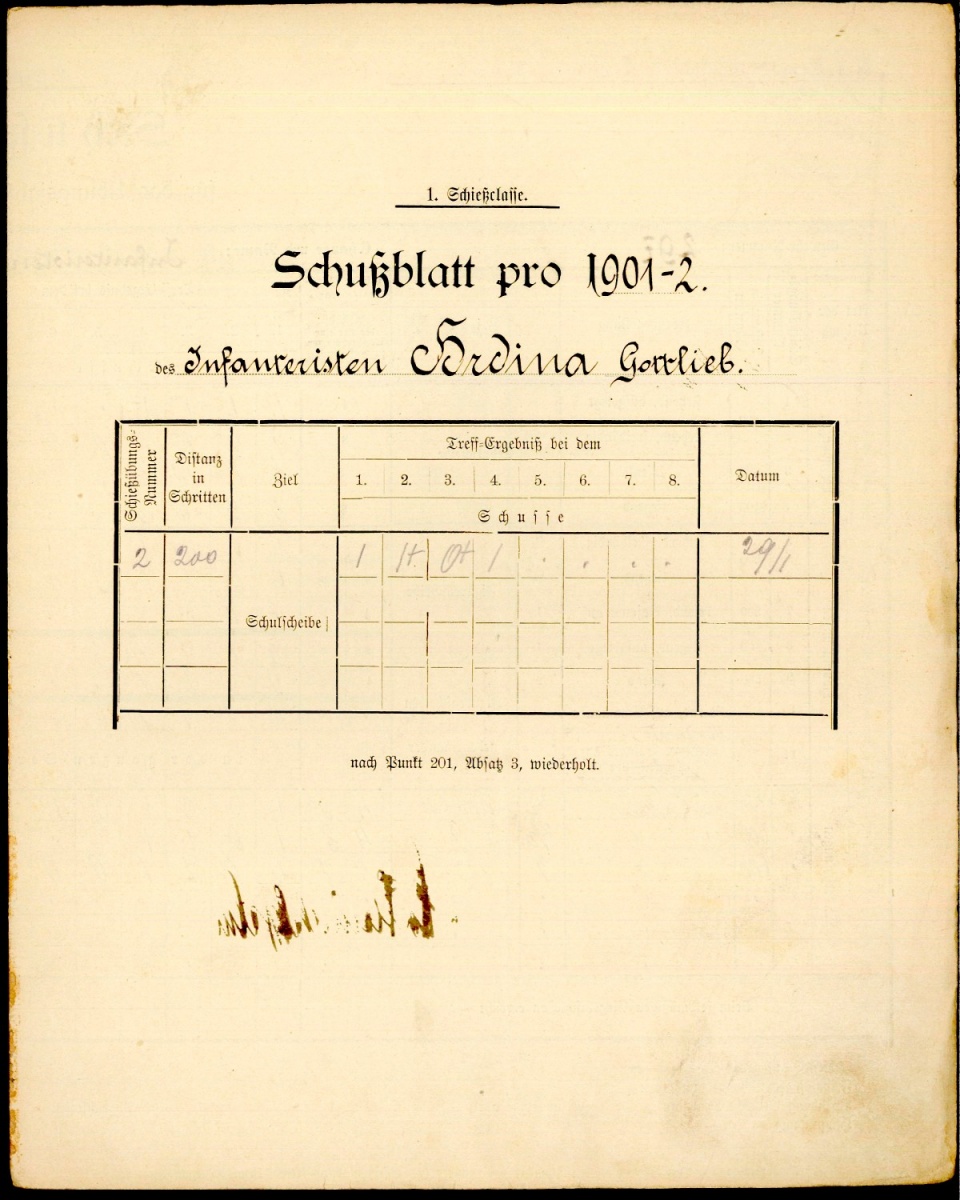 1. Schießclasse.
Schußblatt pro 1901-2.
des Infanteristen Hrdina Gottlieb.
Schießübungs-Nummer
Distanz in Schritten
Ziel
Treff-Ergebniß bei dem
1. 2. 3. 4. 5. 6. 7. 8.
Schusse
Datum
2 200 1 1+ 0+ 1 . . . . 29/1
Schulscheibe
nach Punkt 201, Absatz 3, wiederholt.